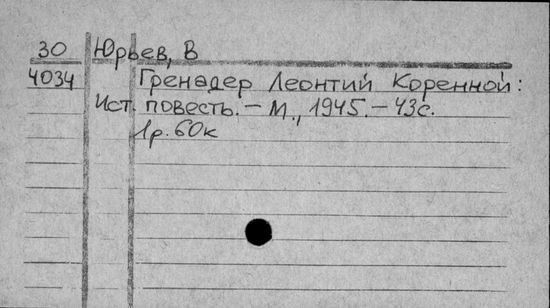 30 Юрьев, В
4034 Гренадер Леонтий Коренной:
Ист. повесть. – М., 1945. – 43с.
1р. 60к